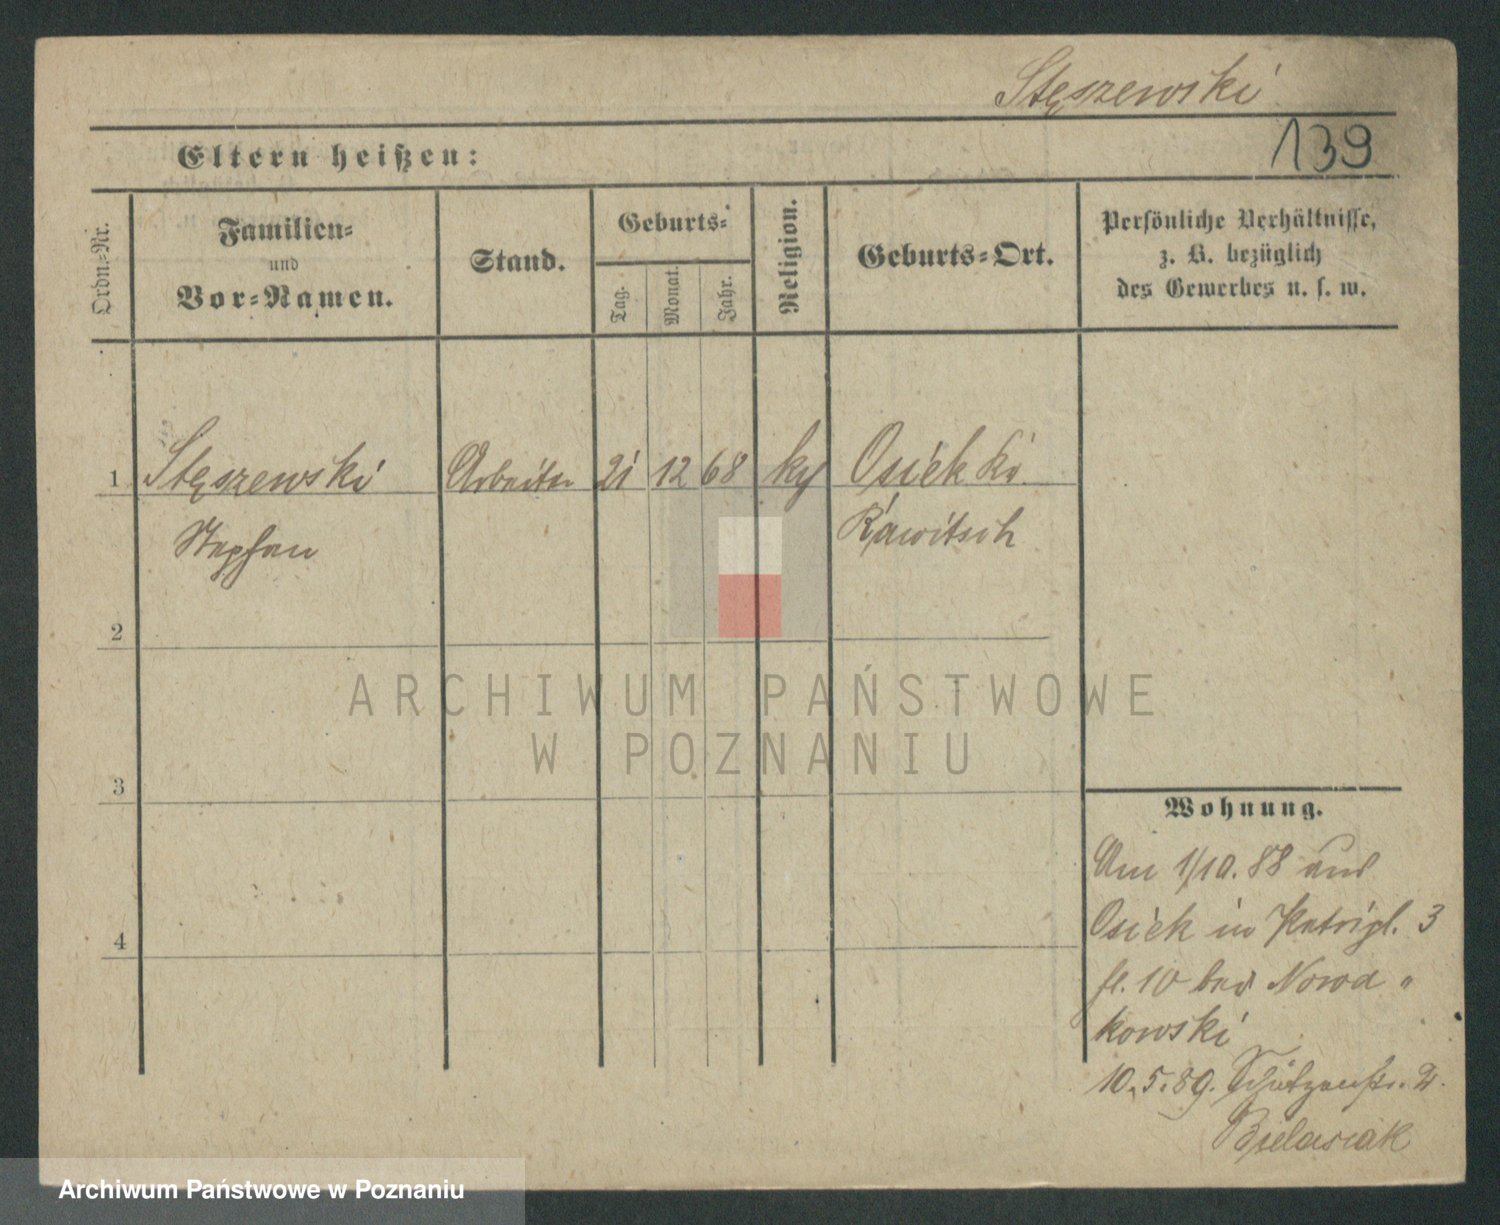 Stęszewski
Eltern heißen:
139
Ordn.-Nr.
Familien-
und
Vor-Namen.
Stand.
Geburts-
Tag.
Monat.
Jahr.
Religion.
Geburts-Ort.
Persönliche Verhältnisse,
z. B. bezüglich
des Gewerbes u. s. w.
1
Stęszewski
Arbeiter
21
12
68
Osiek Kr.
Stephan
Rawitsch
2
3
4
Wohnung.
Am 1/10. 88 aus
Osiek in 3
10 bei Nowa
kowski
10.5.89. Schützenstr.
Bielasiak
ARCHIWUM PAŃSTWOWE
W POZNANIU
Archiwum Państwowe w Poznaniu